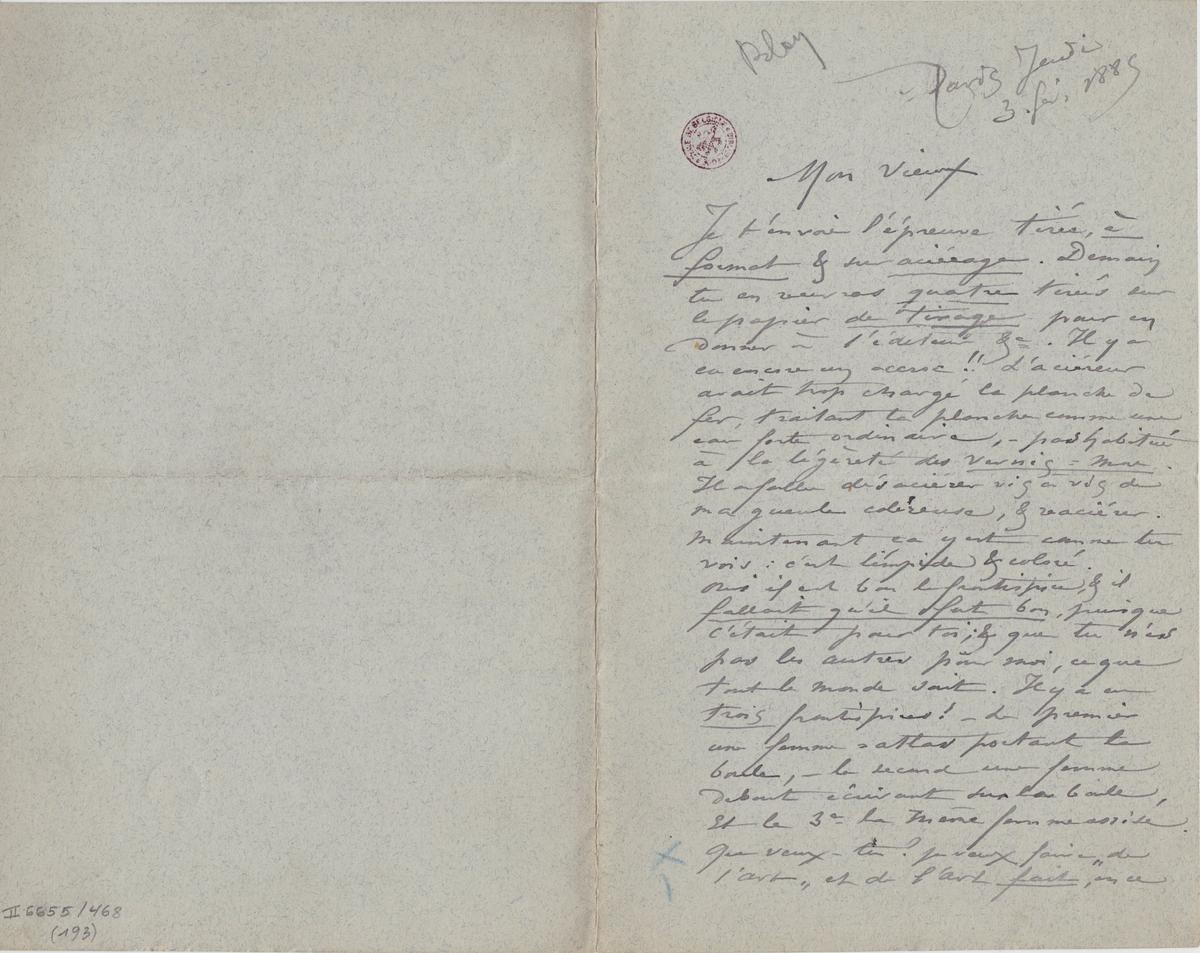 Bloy
Paris Jeudi
3. fév. 1885
Mon vieux
Je t'envoie l'épreuve tirée, à
format & sur aciérage. Demain
tu en recevras quatre tirées sur
le papier de tirage pour en
donner à l'éditeur &c. Il y a
eu encore un accroc !! L'aciéreur
avait trop chargé la planche de
fer, traitant la planche comme une
eau forte ordinaire, - pas habitué
à la légèreté des vernis = mou.
Il a fallu désaciérer vis à vis de
ma gueule coléreuse, & reaciérer.
Maintenant ça y est comme tu
vois : c'est limpide & coloré.
Oui il est bon le frontispice, & il
fallait qu'il fut bon, puisque
c'était pour toi; & que tu n'es
pas les autres pour moi, ce que
tout le monde sait. Il y a eu
trois frontispices! - Le premier
une femme = atlas portant la
boule, - le second une femme
debout écrivant sur la boule,
Et le 3e la même femme assise.
Que veux-tu? je veux faire „de
l'art„ et de l'art fait, en ce
II 6655/468
(193)